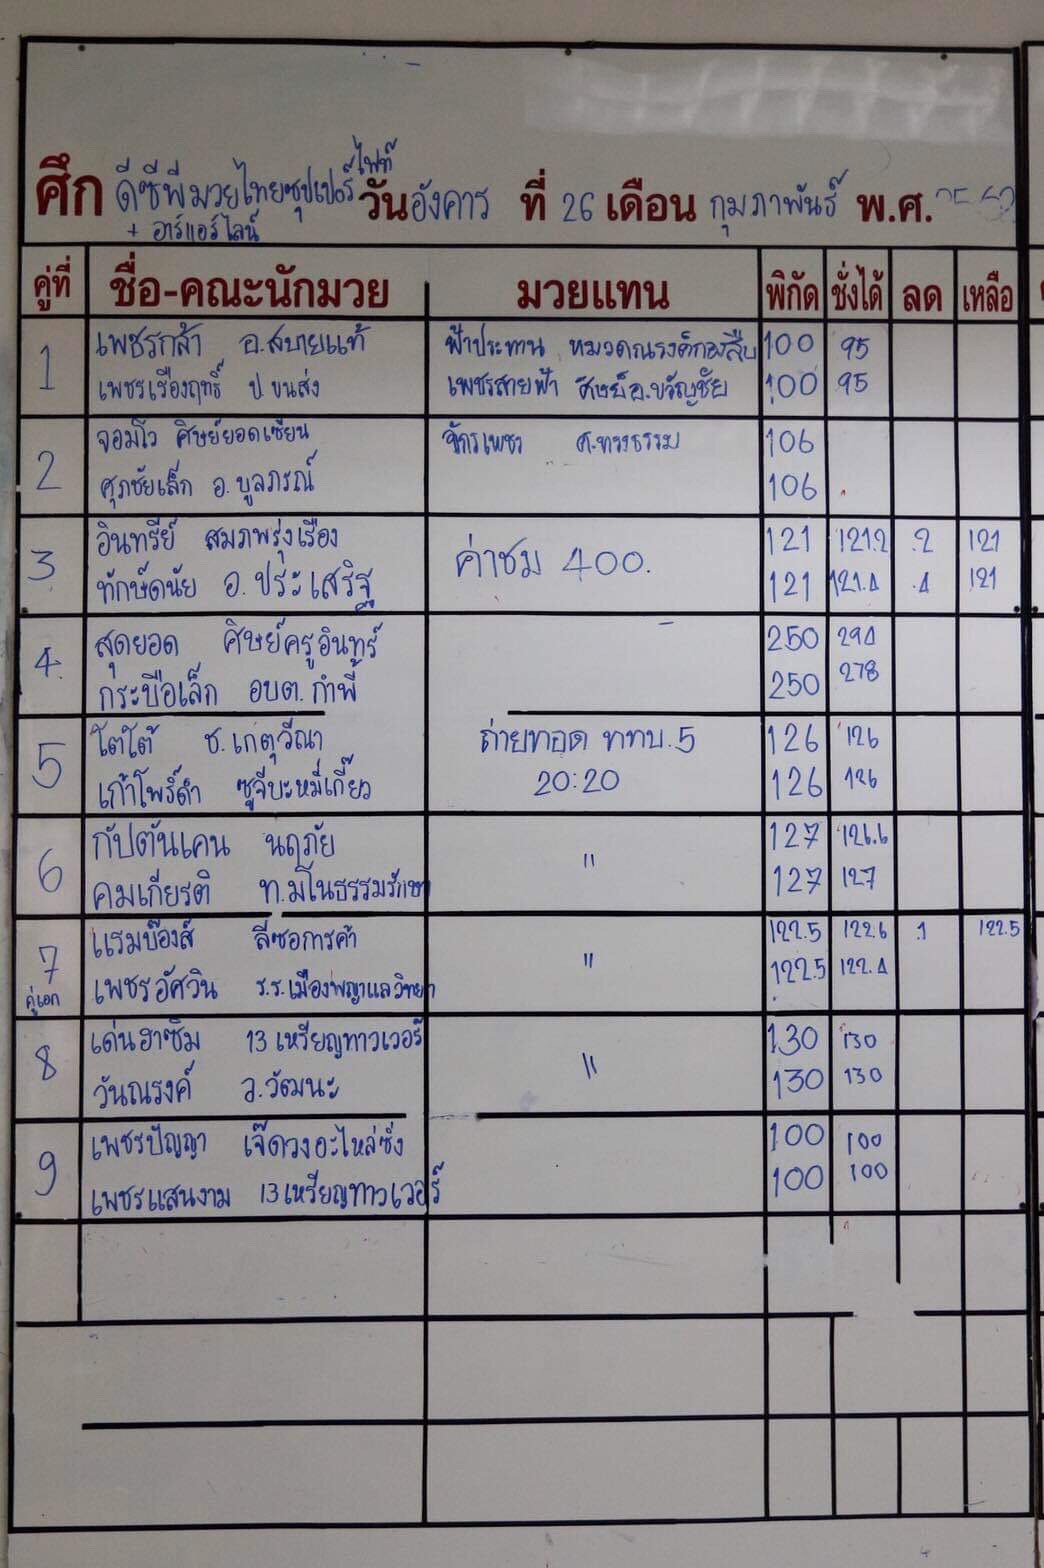 ศึก ดีซีพีมวยไทยซุปเปอร์ไฟท์ วันอังคาร ที่ 26 เดือน กุมภาพันธ์ พ.ศ. 2562
+ อาร์แอร์ไลน์
คู่ที่ ชื่อ-คณะนักมวย มวยแทน พิกัด ชั่งได้ ลด เหลือ
1 เพชรกล้า อ.สบายแท้ ฟ้าประทาน หมวดณรงค์ 100 95
เพชรเรืองฤทธิ์ ป.ขนส่ง เพชรสายฟ้า ศิษย์อ.ขวัญชัย 100 95
2 จอมโว ศิษย์ยอดเซียน จักรเพชร ศ.ทรงธรรม 106
ศุภชัยเล็ก อ.บูลภรณ์ 106
3 อินทรีย์ สมภพรุ่งเรือง ค่าชม 400. 121 121.2 .2 121
ทักษ์ดนัย อ.ประเสริฐ 121 121.4 .4 121
4 สุดยอด ศิษย์ครูอินทร์ 250 294
กระบือเล็ก อบต.กำพี้ 250 278
5 โตโต้ ช.เกตุวีณา ถ่ายทอด ททบ.5 126 126
เก้าโพธิ์ดำ ซูจีบะหมี่เกี๊ยว 20:20 126 126
6 กัปตันเคน นฤภัย " 127 126.6
คมเกียรติ ท.มโนธรรมรักษา 127 127
7 แรมบ๊องส์ ลี่ซอการค้า " 122.5 122.6 .1 122.5
คู่เอก เพชรอัศวิน ร.ร.เมืองพญาแลวิทยา 122.5 122.4
8 เด่นฮาซิม 13 เหรียญทาวเวอร์ " 130 130
วันณรงค์ ว.วัฒนะ 130 130
9 เพชรปัญญา เจ๊ดวงอะไหล่ซิ่ง 100 100
เพชรแสนงาม 13เหรียญทาวเวอร์ 100 100